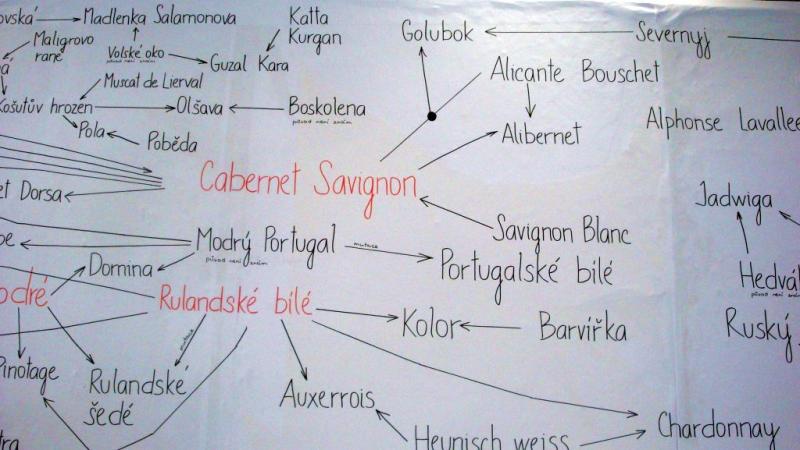 Madlenka Salamonova
Katta
Kurgan
Golubok
Severnyj
Maligrovo
rané
Volské oko
původ není znám
Guzal Kara
Alicante Bouschet
Muscat de Lierval
Košutův hrozen
Olšava
Boskolena
původ není znám
Pola
Poběda
Alibernet
Alphonse Lavallee
Cabernet Savignon
et Dorsa
Jadwiga
Savignon Blanc
Modrý Portugal
původ není znám
mutace
Domina
Portugalské bílé
Hedváb
původ není znám
odré
Rulandské bílé
Kolor
Barvířka
Ruský
mutace
Pinotage
Rulandské
šedé
Auxerrois
Chardonnay
Heunisch weiss